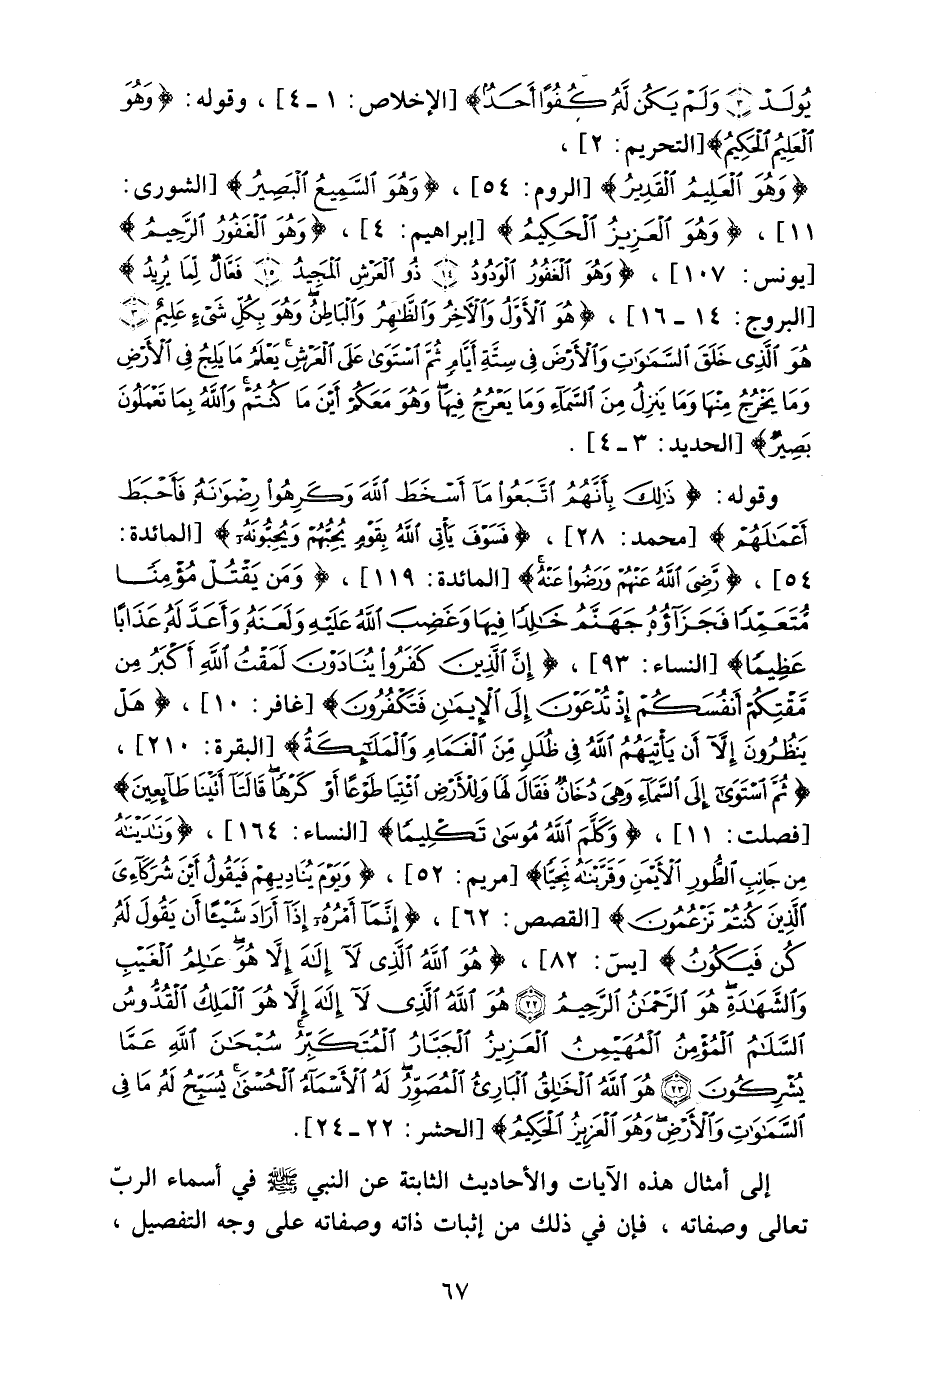 يُولَدْ ﴿٣﴾ وَلَمْ يَكُن لَّهُ كُفُوًا أَحَدٌ﴾ [الإخلاص: ١ ـ٤] ، وقوله: ﴿ وَهُوَ
الْعَلِيمُ الْحَكِيمُ﴾[التحريم: ٢] ،
﴿ وَهُوَ الْعَلِيمُ الْقَدِيرُ﴾ [الروم: ٥٤] ، ﴿ وَهُوَ السَّمِيعُ الْبَصِيرُ ﴾ [الشورى:
١١] ، ﴿ وَهُوَ الْعَزِيزُ الْحَكِيمُ ﴾ [إبراهيم: ٤] ، ﴿وَهُوَ الْغَفُورُ الرَّحِيمُ ﴾
[يونس: ١٠٧] ، ﴿ وَهُوَ الْغَفُورُ الْوَدُودُ ﴿١٤﴾ ذُو الْعَرْشِ الْمَجِيدُ ﴿١٥﴾ فَعَّالٌ لِّمَا يُرِيدُ ﴾
[البروج: ١٤ ـ١٦] ، ﴿ هُوَ الْأَوَّلُ وَالْآخِرُ وَالظَّاهِرُ وَالْبَاطِنُ وَهُوَ بِكُلِّ شَيْءٍ عَلِيمٌ ﴿٣﴾
هُوَ الَّذِي خَلَقَ السَّمَاوَاتِ وَالْأَرْضَ فِي سِتَّةِ أَيَّامٍ ثُمَّ اسْتَوَىٰ عَلَى الْعَرْشِ يَعْلَمُ مَا يَلِجُ فِي الْأَرْضِ
وَمَا يَخْرُجُ مِنْهَا وَمَا يَنزِلُ مِنَ السَّمَاءِ وَمَا يَعْرُجُ فِيهَا وَهُوَ مَعَكُمْ أَيْنَ مَا كُنتُمْ وَاللَّهُ بِمَا تَعْمَلُونَ
بَصِيرٌ﴾ [الحديد: ٣ ـ٤] .
وقوله: ﴿ ذَٰلِكَ بِأَنَّهُمُ اتَّبَعُوا مَا أَسْخَطَ اللَّهَ وَكَرِهُوا رِضْوَانَهُ فَأَحْبَطَ
أَعْمَالَهُمْ ﴾ [محمد: ٢٨] ، ﴿ فَسَوْفَ يَأْتِي اللَّهُ بِقَوْمٍ يُحِبُّهُمْ وَيُحِبُّونَهُ ﴾ [المائدة:
٥٤] ، ﴿ رَّضِيَ اللَّهُ عَنْهُمْ وَرَضُوا عَنْهُ﴾ [المائدة: ١١٩] ، ﴿ وَمَن يَقْتُلْ مُؤْمِنًا
مُّتَعَمِّدًا فَجَزَاؤُهُ جَهَنَّمُ خَالِدًا فِيهَا وَغَضِبَ اللَّهُ عَلَيْهِ وَلَعَنَهُ وَأَعَدَّ لَهُ عَذَابًا
عَظِيمًا﴾ [النساء: ٩٣] ، ﴿ إِنَّ الَّذِينَ كَفَرُوا يُنَادَوْنَ لَمَقْتُ اللَّهِ أَكْبَرُ مِن
مَّقْتِكُمْ أَنفُسَكُمْ إِذْ تُدْعَوْنَ إِلَى الْإِيمَانِ فَتَكْفُرُونَ﴾ [غافر: ١٠] ، ﴿ هَلْ
يَنظُرُونَ إِلَّا أَن يَأْتِيَهُمُ اللَّهُ فِي ظُلَلٍ مِّنَ الْغَمَامِ وَالْمَلَائِكَةُ﴾ [البقرة: ٢١٠] ،
﴿ ثُمَّ اسْتَوَىٰ إِلَى السَّمَاءِ وَهِيَ دُخَانٌ فَقَالَ لَهَا وَلِلْأَرْضِ ائْتِيَا طَوْعًا أَوْ كَرْهًا قَالَتَا أَتَيْنَا طَائِعِينَ﴾
[فصلت: ١١] ، ﴿ وَكَلَّمَ اللَّهُ مُوسَىٰ تَكْلِيمًا﴾ [النساء: ١٦٤] ، ﴿وَنَادَيْنَاهُ
مِن جَانِبِ الطُّورِ الْأَيْمَنِ وَقَرَّبْنَاهُ نَجِيًّا﴾ [مريم: ٥٢] ، ﴿ وَيَوْمَ يُنَادِيهِمْ فَيَقُولُ أَيْنَ شُرَكَائِيَ
الَّذِينَ كُنتُمْ تَزْعُمُونَ﴾ [القصص: ٦٢] ، ﴿ إِنَّمَا أَمْرُهُ إِذَا أَرَادَ شَيْئًا أَن يَقُولَ لَهُ
كُن فَيَكُونُ ﴾ [يسٓ: ٨٢] ، ﴿ هُوَ اللَّهُ الَّذِي لَا إِلَٰهَ إِلَّا هُوَ عَالِمُ الْغَيْبِ
وَالشَّهَادَةِ هُوَ الرَّحْمَٰنُ الرَّحِيمُ ﴿٢٢﴾ هُوَ اللَّهُ الَّذِي لَا إِلَٰهَ إِلَّا هُوَ الْمَلِكُ الْقُدُّوسُ
السَّلَامُ الْمُؤْمِنُ الْمُهَيْمِنُ الْعَزِيزُ الْجَبَّارُ الْمُتَكَبِّرُ سُبْحَانَ اللَّهِ عَمَّا
يُشْرِكُونَ ﴿٢٣﴾ هُوَ اللَّهُ الْخَالِقُ الْبَارِئُ الْمُصَوِّرُ لَهُ الْأَسْمَاءُ الْحُسْنَىٰ يُسَبِّحُ لَهُ مَا فِي
السَّمَاوَاتِ وَالْأَرْضِ وَهُوَ الْعَزِيزُ الْحَكِيمُ﴾ [الحشر: ٢٢ ـ٢٤].
إلى أمثال هذه الآيات والأحاديث الثابتة عن النبي ﷺ في أسماء الربّ
تعالى وصفاته ، فإن في ذلك من إثبات ذاته وصفاته على وجه التفصيل ،
٦٧